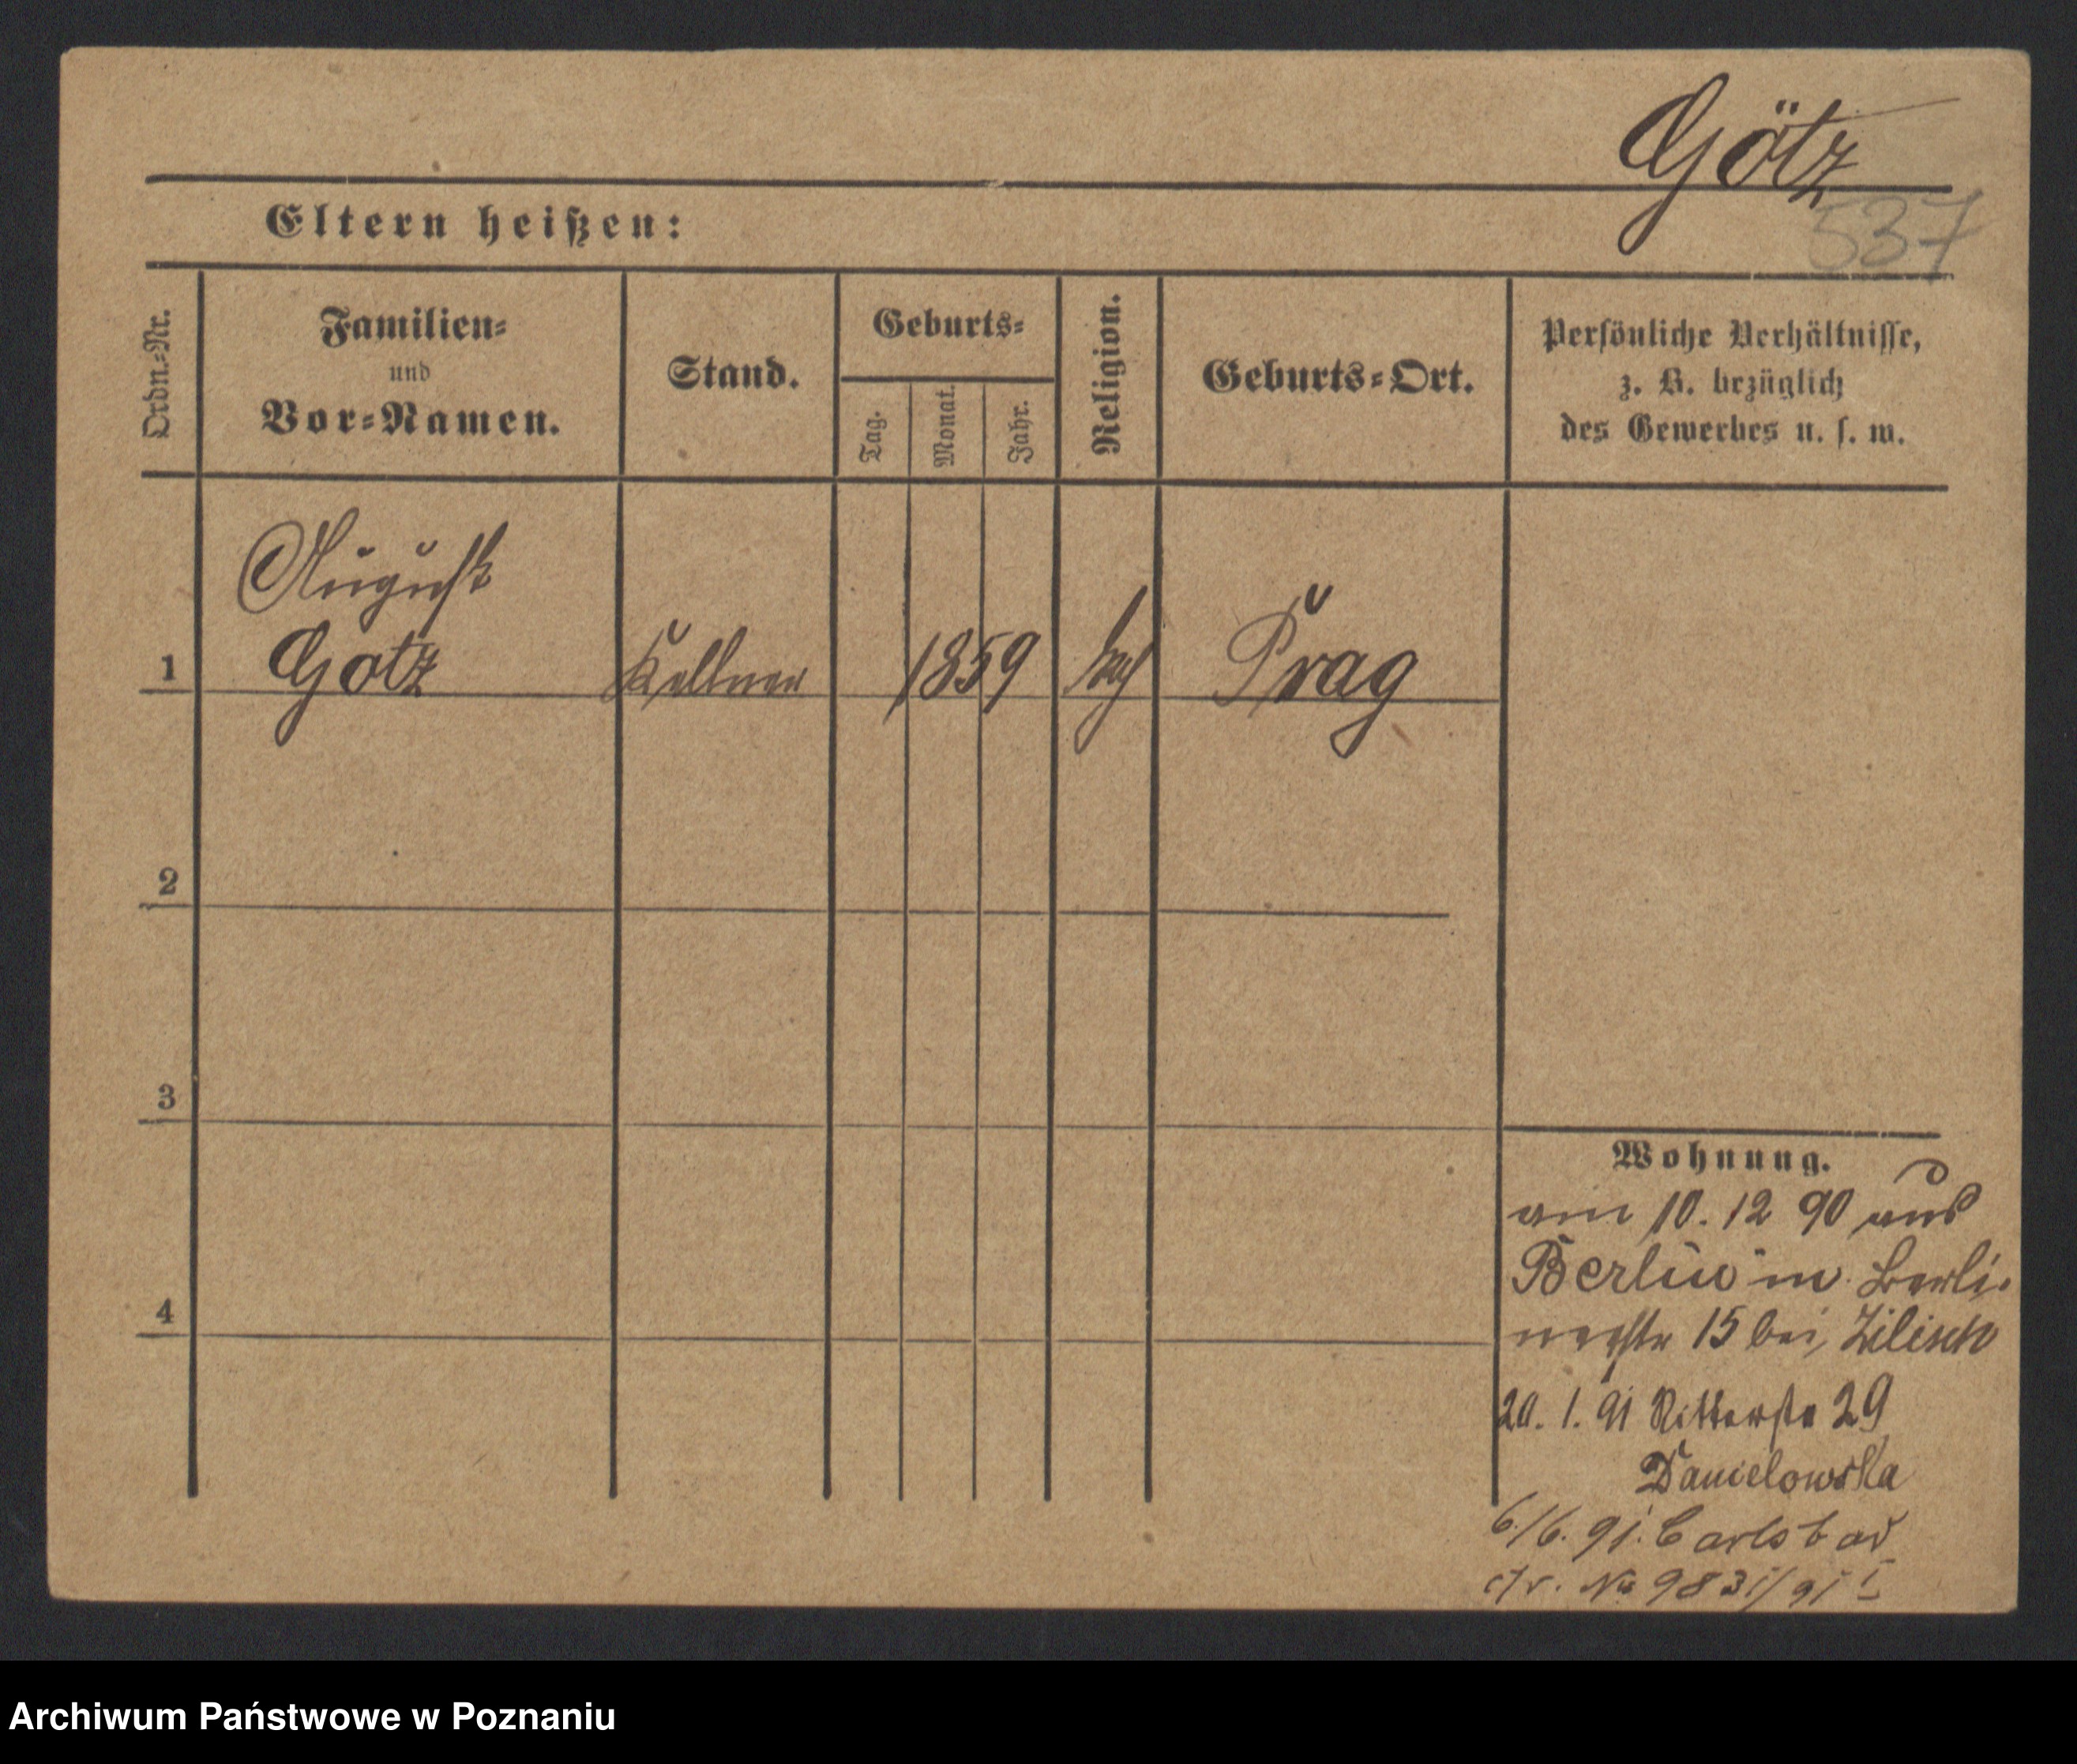 Götz
537
Eltern heißen:
Ordn.=Nr.
Familien=
und
Vor=Namen.
Stand.
Geburts=
Tag.
Monat.
Jahr.
Religion.
Geburts=Ort.
Persönliche Verhältnisse,
z. B. bezüglich
des Gewerbes u. s. w.
August
1 Götz Kellner 1859 Prag
2
3
4
Wohnung.
am 10. 12 90 aus
Berlin Berli-
nerstr 15 bei Zilisch
20. 1. 91 Ritterstr 29
Danielowska
6./6. 91. Carlsbad
No 9831/91 I
Archiwum Państwowe w Poznaniu